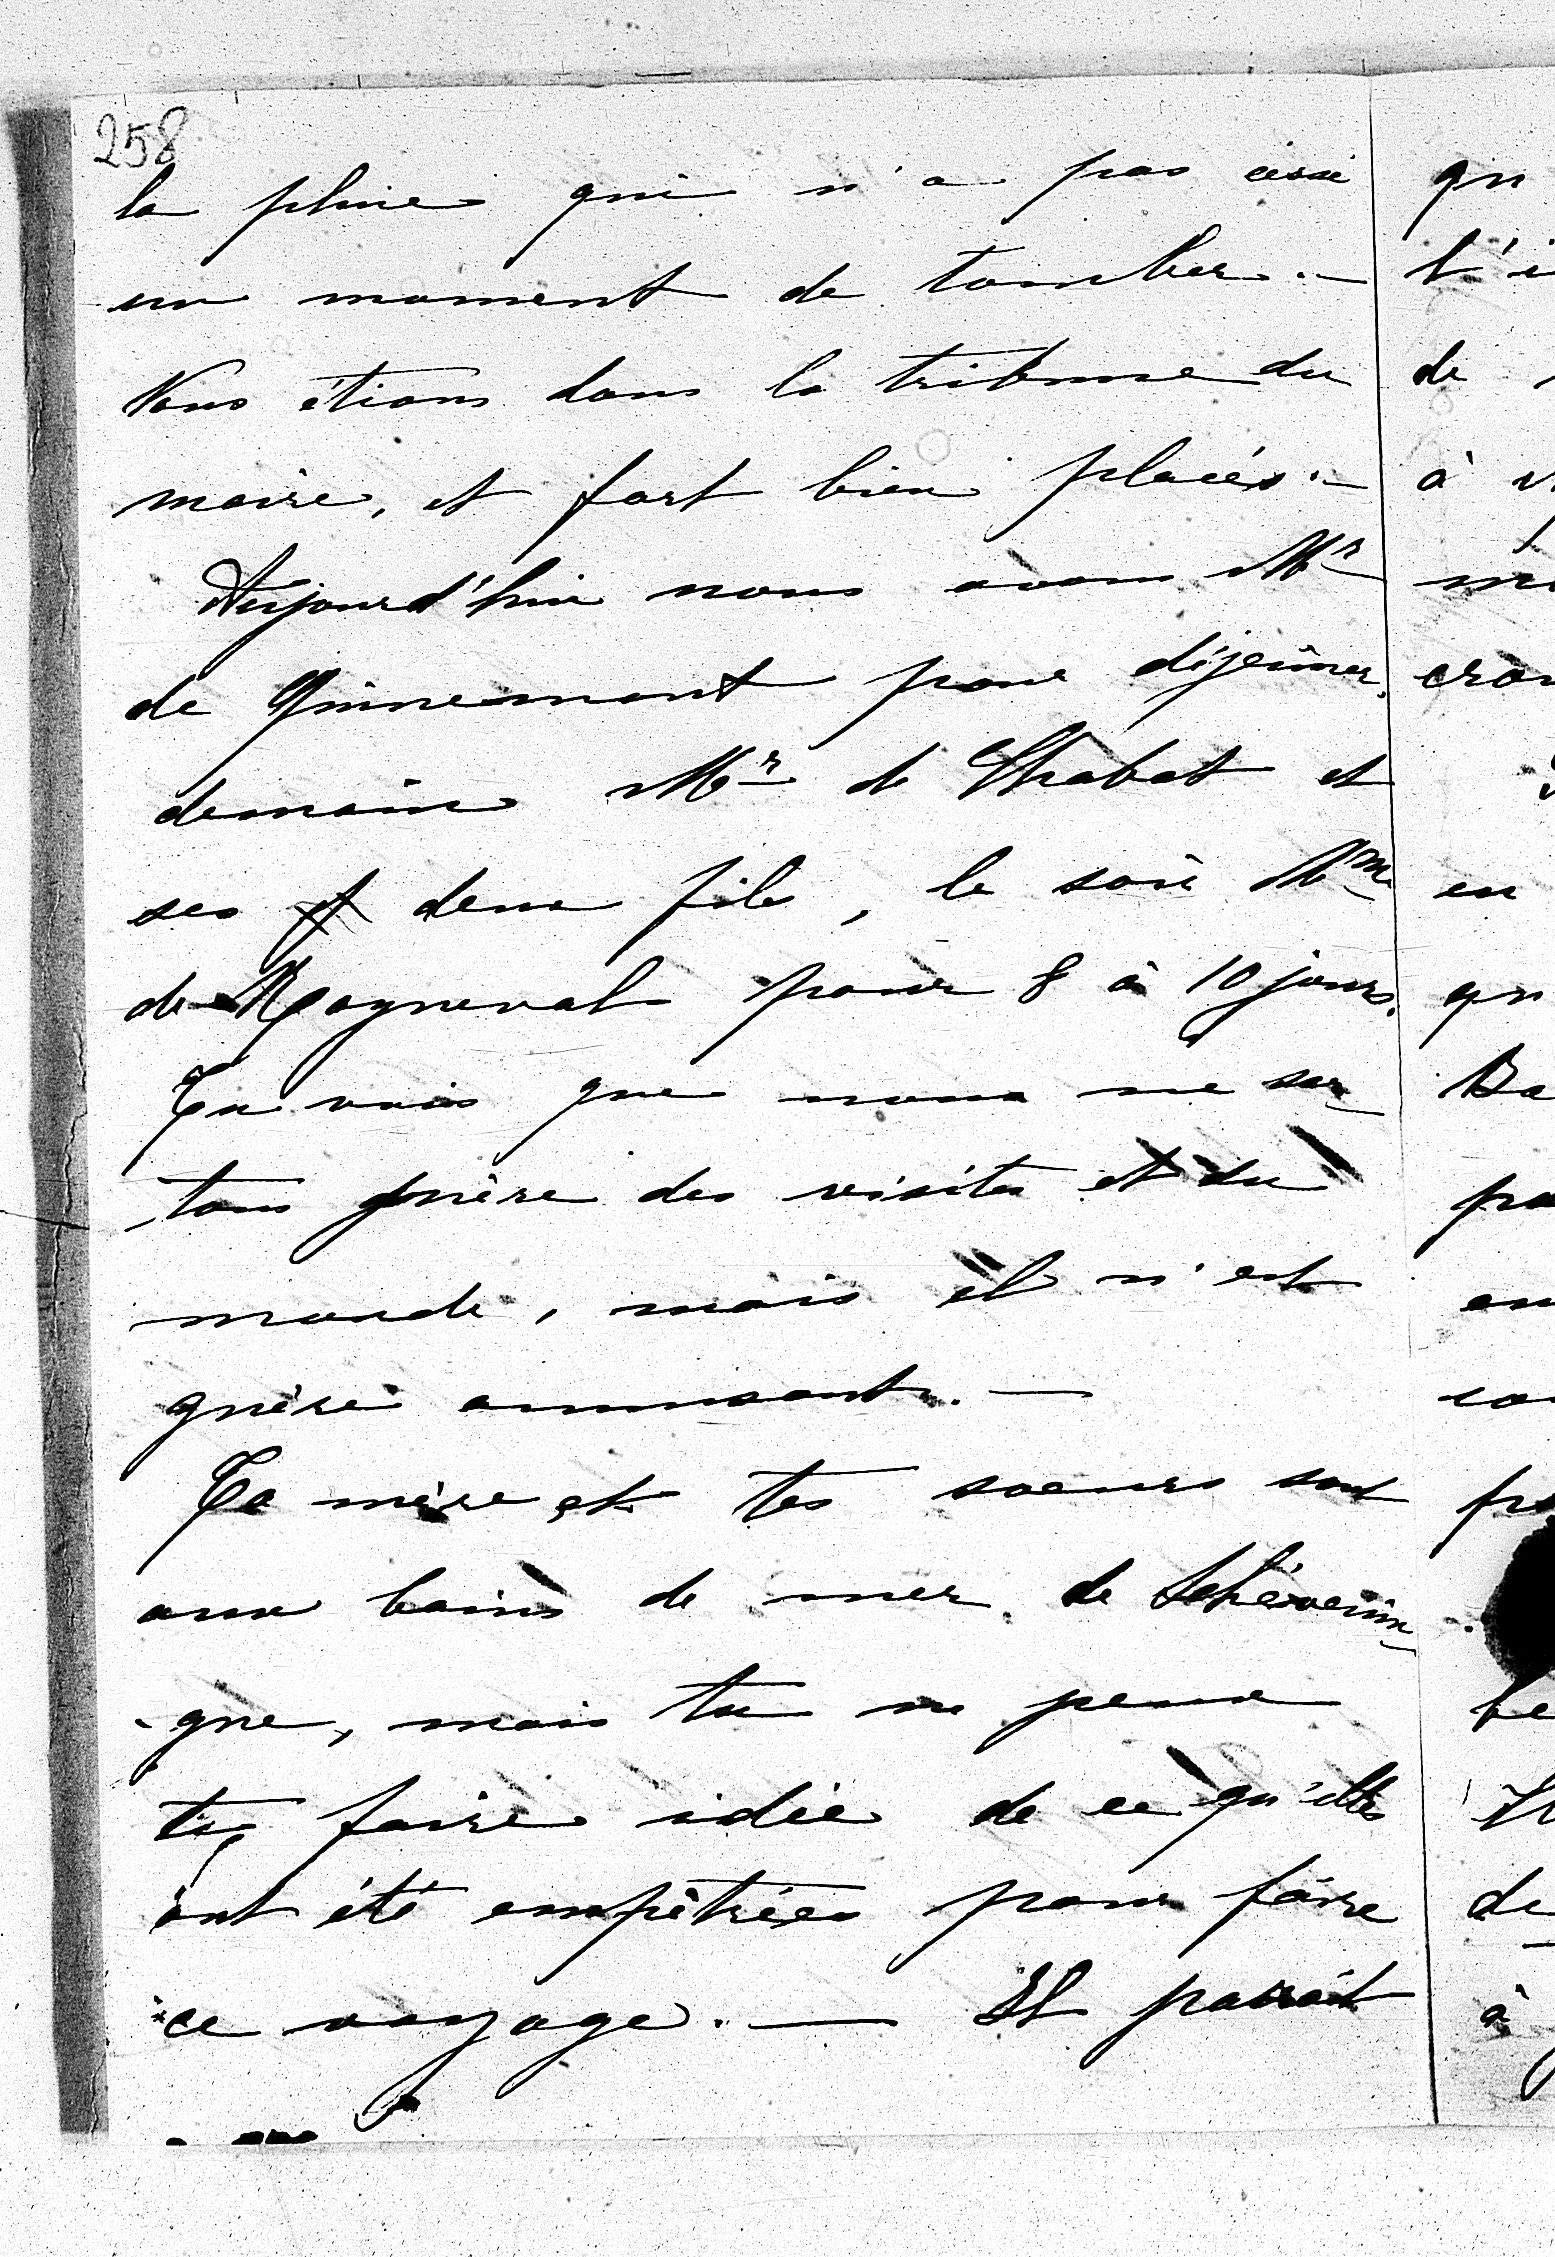 258
la pluie qui n'a pas cessé
un moment de tomber. —
Nous étions dans la tribune du
maire, et fort bien placés. —
Aujourd'hui nous avons Mr
de Guinemont pour déjeûner,
demain Mr de Chabot et
ses deux fils, le soir Mme
de Rayneval pour 8 à 10 jours.
Tu vois que nous ne sor-
tons guère des visites et du
monde, mais il n'est
guère amusant. —
Ta mère et tes soeurs sont
aux bains de mer de Schévenin-
gue, mais tu ne peux
te faire idée de ce qu'elles
ont été empêtrées pour faire
ce voyage. — Il paraît
qu
l'i
de
à
cro
en
qu
Ba
pa
en
so
be
de
à